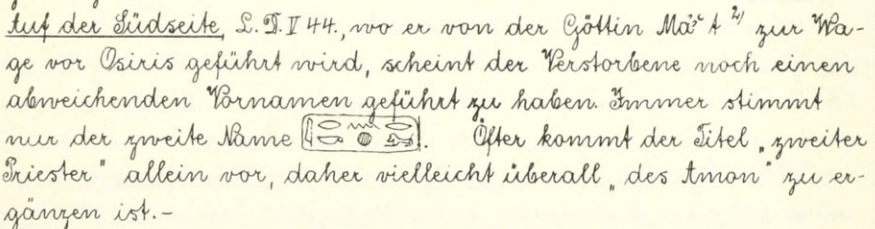 Auf der Südseite, L.D.V 44., wo er von der Göttin Mꜣꜥ.t ²⁾ zur Wa-
ge vor Osiris geführt wird, scheint der Verstorbene noch einen
abweichenden Vornamen geführt zu haben. Immer stimmt
nur der zweite Name. Öfter kommt der Titel „zweiter
Priester" allein vor, daher vielleicht überall „des Amon" zu er-
gänzen ist.-